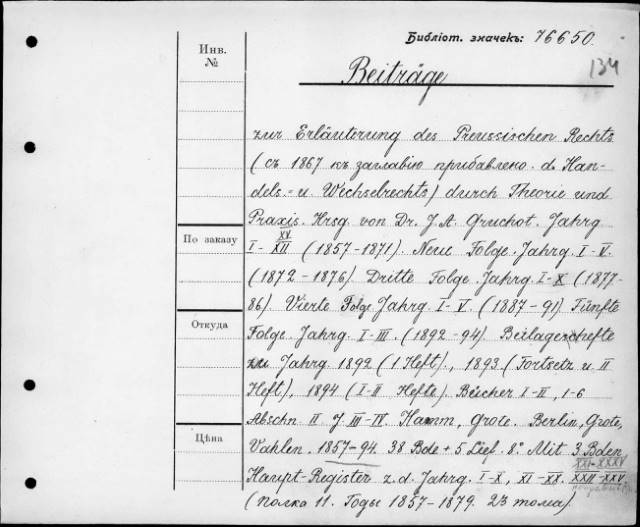 Библіот. значекъ: 76650.
134
Инв.
№
Beiträge
zur Erläuterung des Preussischen Rechts
(съ 1867 къ заглавію прибавлено. d. Han-
dels.= u. Wechselrechts) durch Theorie und
Praxis. Hrsg. von Dr. J. A. Gruchot. Jahrg.
XV
По заказу
I - XII (1857-1871). Neue Folge. Jahrg. I-V.
(1872-1876). Dritte Folge. Jahrg. I-X (1877-
86). Vierte Folge Jahrg. I-V. (1887-91) Fünfte
Откуда
Folge. Jahrg. I-III. (1892-94). Beilagenhefte
zu Jahrg. 1892 (1 Heft)., 1893. (Fortsetz u. II
Heft), 1894 (I-II Hefte). Bücher I-II, 1-6
Abschn II J III-IV. Hamm, Grote. Berlin, Grote,
Цѣна
Vahlen. 1857-94. 38 Bde + 5 Lief. 8° Mit 3 Bden
XXI-XXXV
Haupt-Register z. d. Jahrg. I-X, XI-XX. XXII-XXV
(полка 11. Годы 1857-1879. 23 тома).